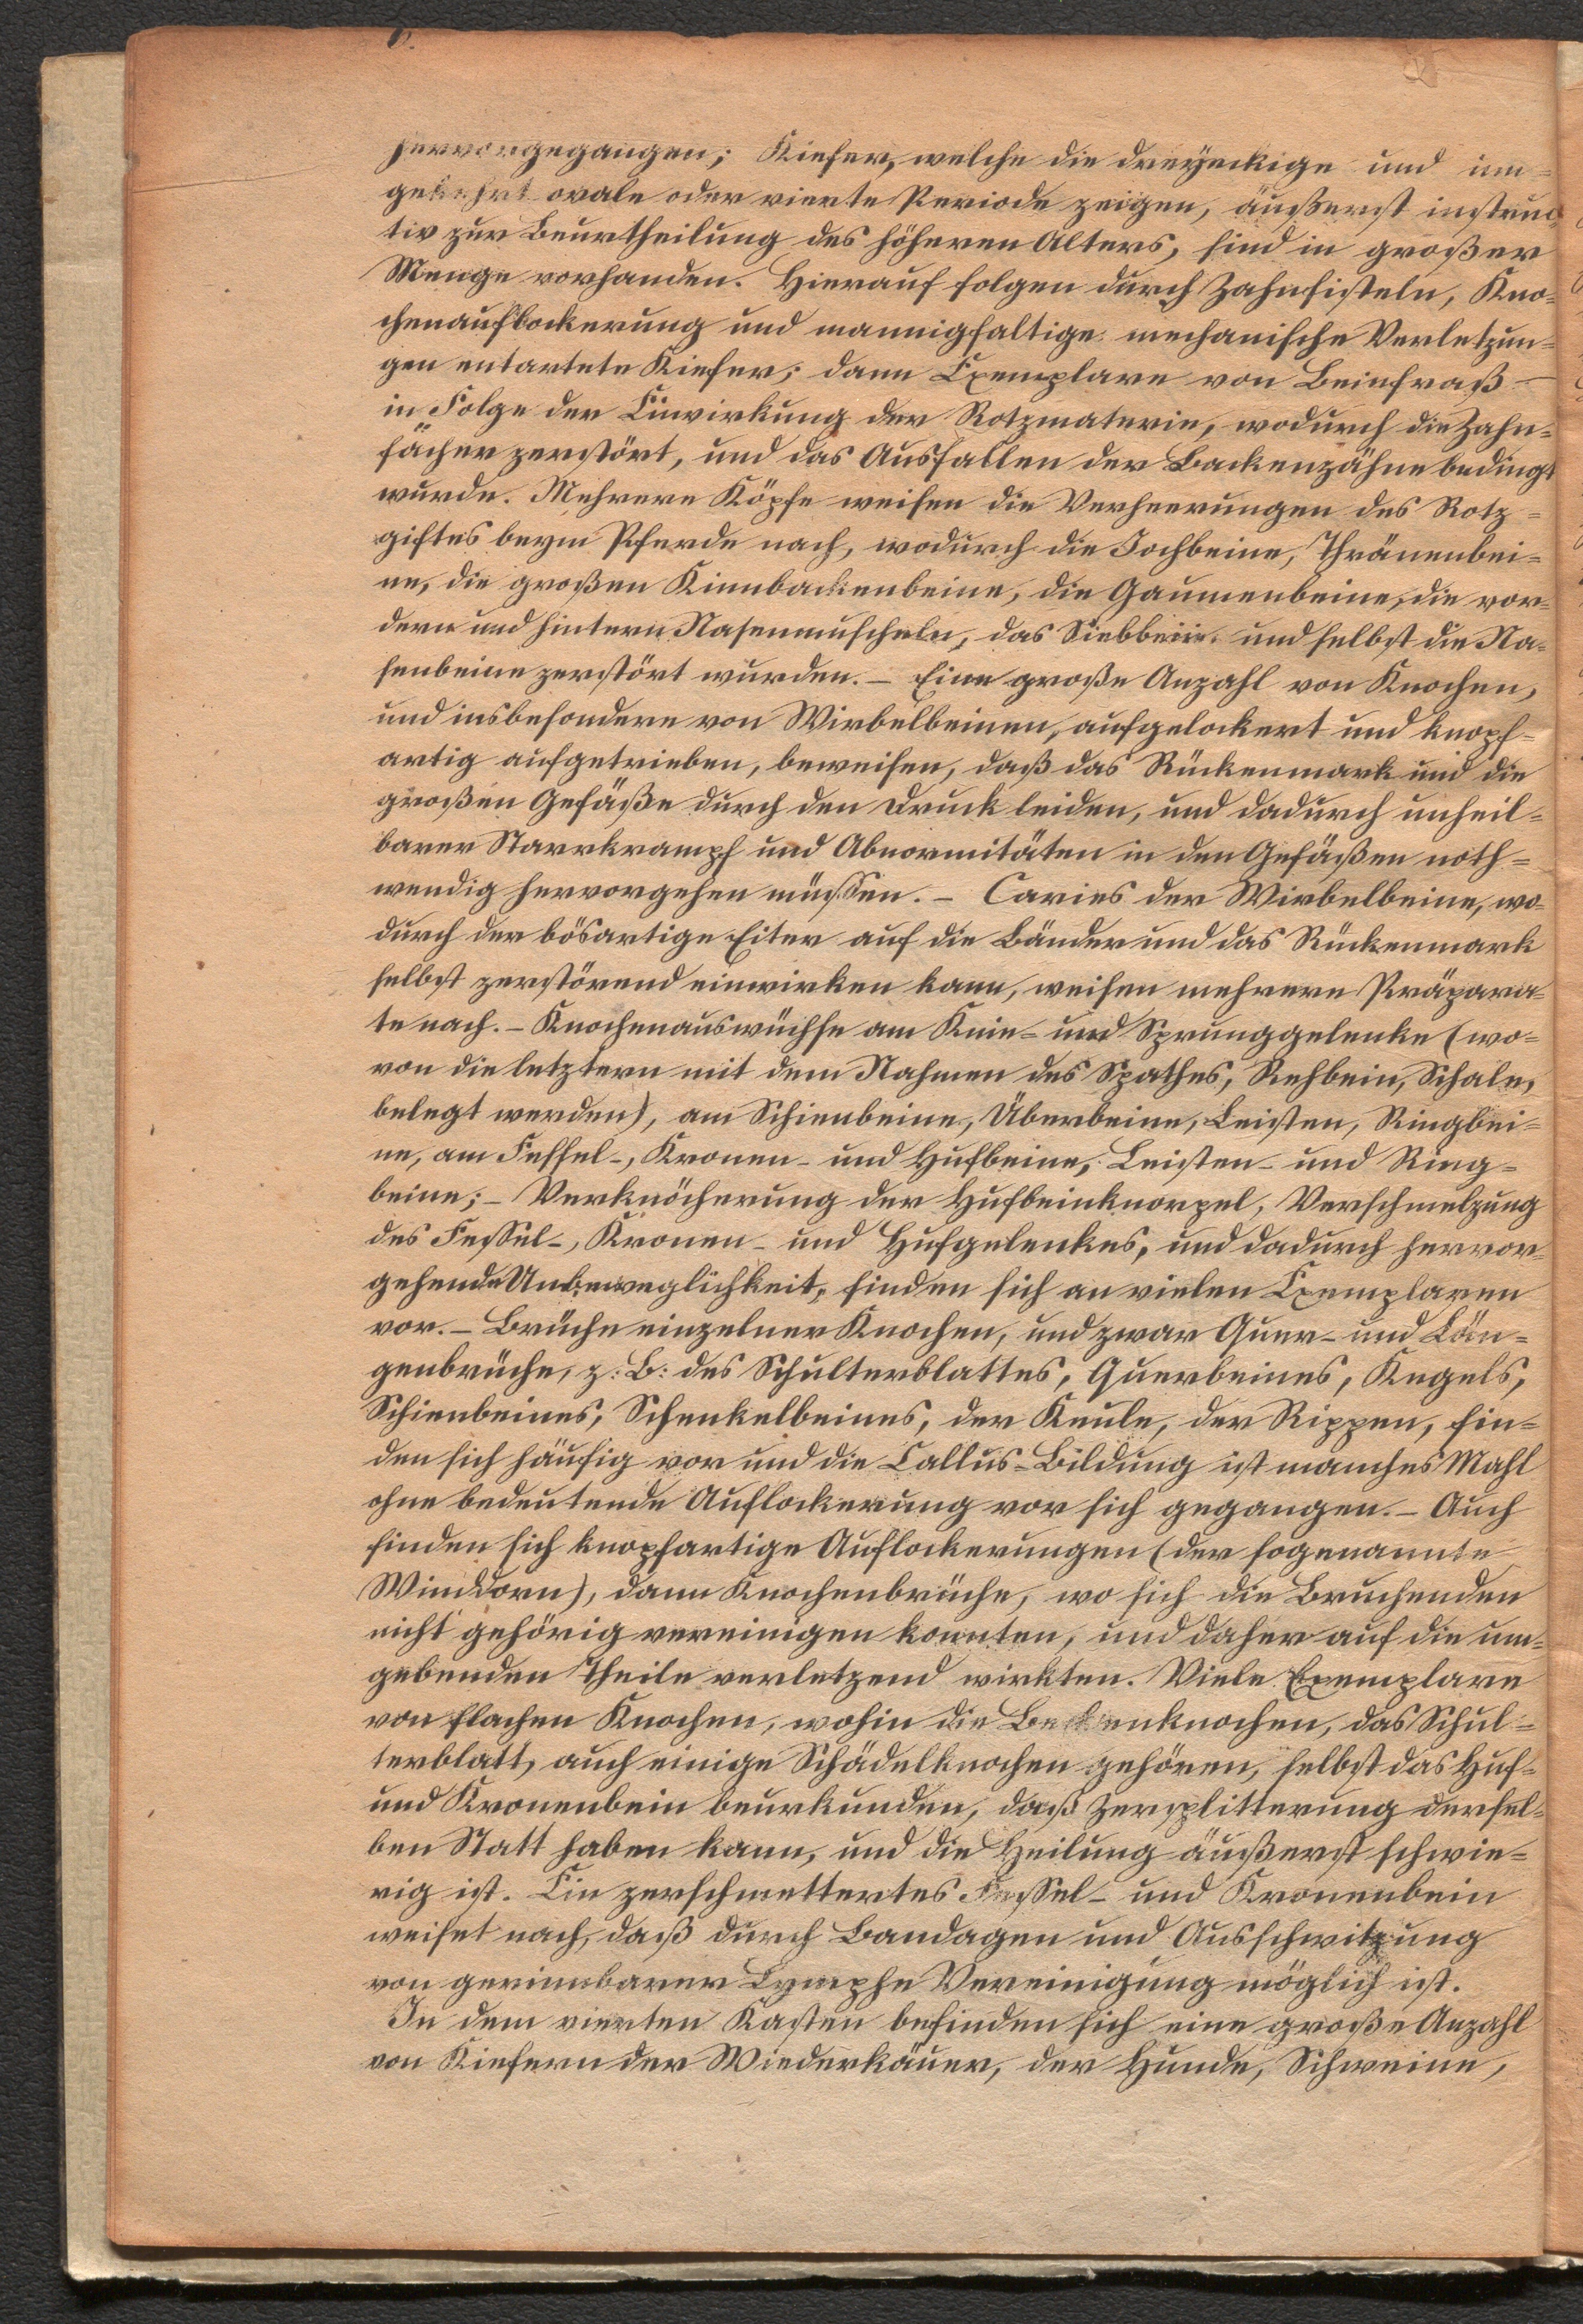 hervorgegangen; Kiefer, welche die dreyeckige und um=
gekehrt ovale oder vierte Periode zeigen, äußerst instruc=
tiv zur Beurtheilung des höheren Alters, sind in großer
Menge vorhanden. Hierauf folgen durch Zahnfisteln, Kno=
chenauflockerung und mannigfaltige mechanische Verletzun=
gen entartete Kiefer; dann Exemplare von Beinfraß –
in Folge der Einwirkung der Rotzmaterie, wodurch die Zahn=
fächer zerstört, und das Ausfallen der Backenzähne bedingt
wurde. Mehrere Köpfe weisen die Verheerungen des Rotz=
giftes beym Pferde nach, wodurch die Jochbeine, Thränenbei=
ne, die großen Kinnbackenbeine, die Gaumenbeine, die vor=
dern und hintern Nasenmuscheln, das Siebbein und selbst die Na=
senbeine zerstört wurden. – Eine große Anzahl von Knochen,
und insbesondere von Wirbelbeinen, aufgelockert und knopf=
artig aufgetrieben, beweisen, daß das Rückenmark und die
großen Gefäße durch den Druck leiden, und dadurch unheil=
barer Starrkrampf und Abnormitäten in den Gefäßen noth=
wendig hervorgehen müssen. – Caries der Wirbelbeine, wo=
durch der bösartige Eiter auf die Bänder und das Rückenmark
selbst zerstörend einwirken kann, weisen mehrere Präpara=
te nach. – Knochenauswüchse am Knie- und Sprunggelenke (wo=
von die letztern mit dem Nahmen des Spathes, Rehbein, Schale,
belegt werden), am Schienbeine, Überbeine, Leisten, Ringbei=
ne, am Fessel-, Kronen- und Hufbeine, Leisten- und Ring=
beine; – Verknöcherung der Hufbeinknorpel, Verschmelzung
des Fessel-, Kronen- und Hufgelenkes, und dadurch hervor=
gehende Unbeweglichkeit, finden sich an vielen Exemplaren
vor. – Brüche einzelner Knochen, und zwar Quer- und Län=
genbrüche, z: B: des Schulterblattes, Querbeines, Kegels,
Schienbeines, Schenkelbeines, der Keule, der Rippen, fin=
den sich häufig vor und die Callus-Bildung ist manches Mahl
ohne bedeutende Auflockerung vor sich gegangen. – Auch
finden sich knopfartige Auflockerungen (der sogenannte
Winddorn), dann Knochenbrüche, wo sich die Bruchenden
nicht gehörig vereinigen konnten, und daher auf die um=
gebenden Theile verletzend wirkten. Viele Exemplare
von flachen Knochen, wohin die Beckenknochen, das Schul=
terblatt, auch einige Schädelknochen gehören, selbst das Huf=
und Kronenbein beurkunden, daß Zersplitterung dersel=
ben Statt haben kann, und die Heilung äußerst schwie=
rig ist. Ein zerschmettertes Fessel- und Kronenbein
weiset nach, daß durch Bandagen und Ausschwitzung
von gerinnbarer Lymphe Vereinigung möglich ist.
In dem vierten Kasten befinden sich eine große Anzahl
von Kiefern der Wiederkäuer, der Hunde, Schweine,